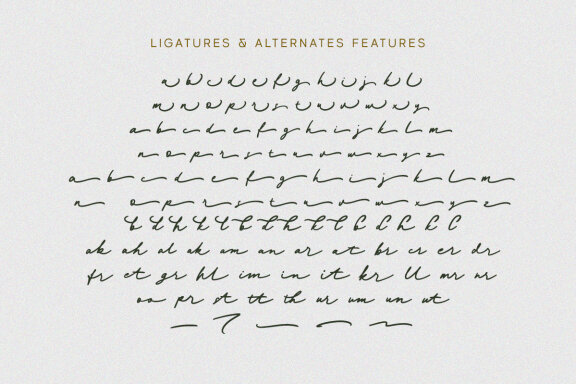 LIGATURES & ALTERNATES FEATURES
a b c d e f g h i j k l
m n o p r s t u v w x y
a b c d e f g h i j k l m
n o p r s t u v w x y z
a b c d e f g h i j k l m
n o p r s t u v w x y z
b d h k l b h k l b d h k l
ab ah al ak am an ar at br cr er dr
fr et gr hl im in it kr ll mr nr
oo pr st tt th ur um un ut